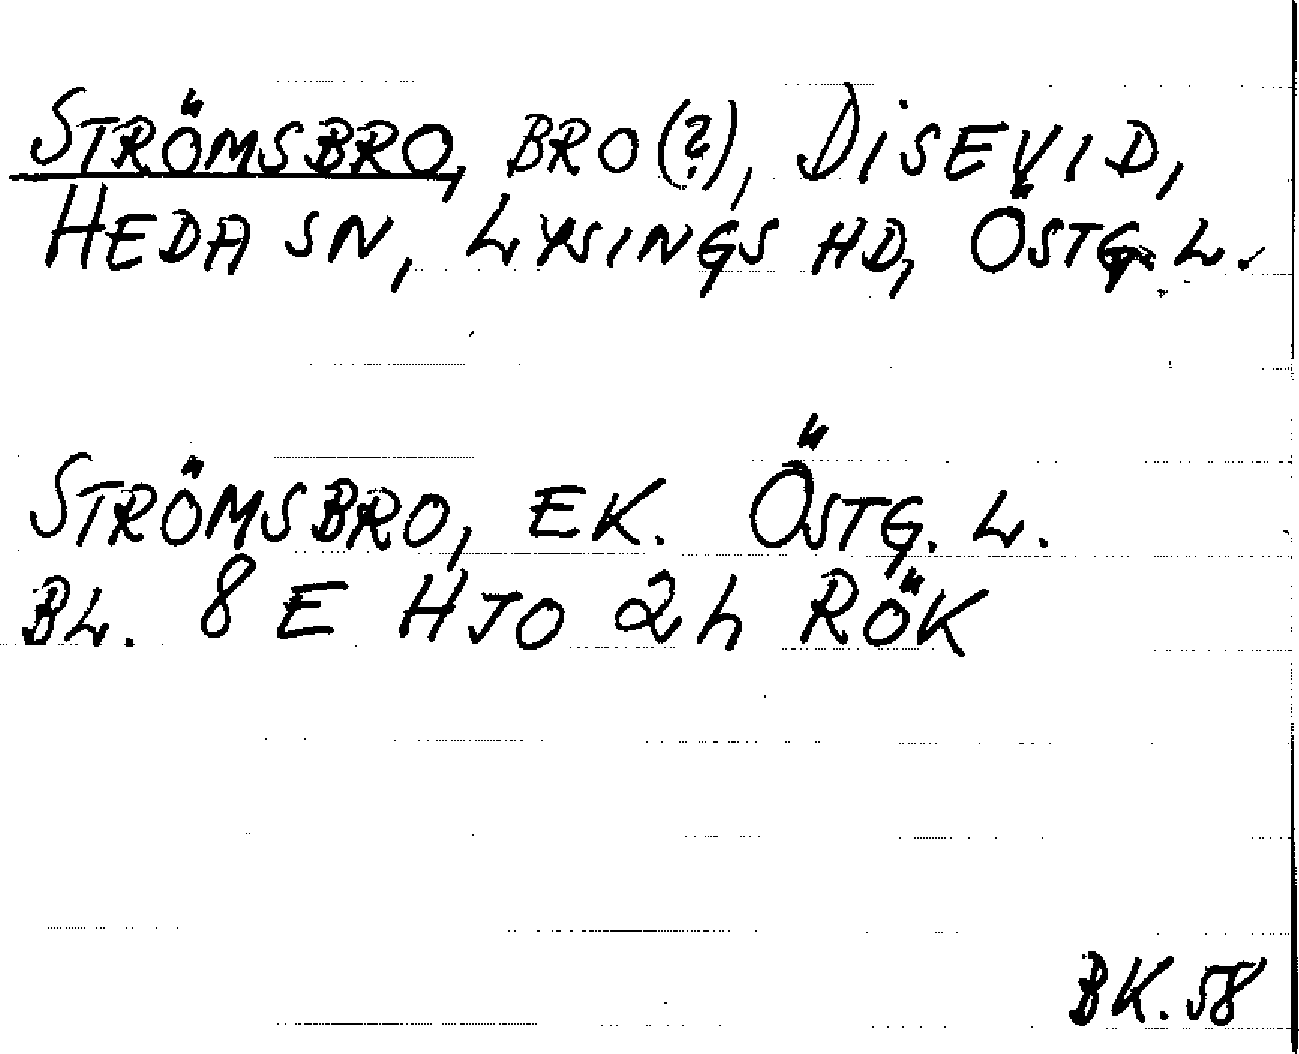 STRÖMSBRO, BRO(?), DISEVID,
HEDA SN, LYSINGS HD, ÖSTG. L.
STRÖMSBRO, EK. ÖSTG. L.
BL. 8 E HJO 2h RÖK
BK. 58